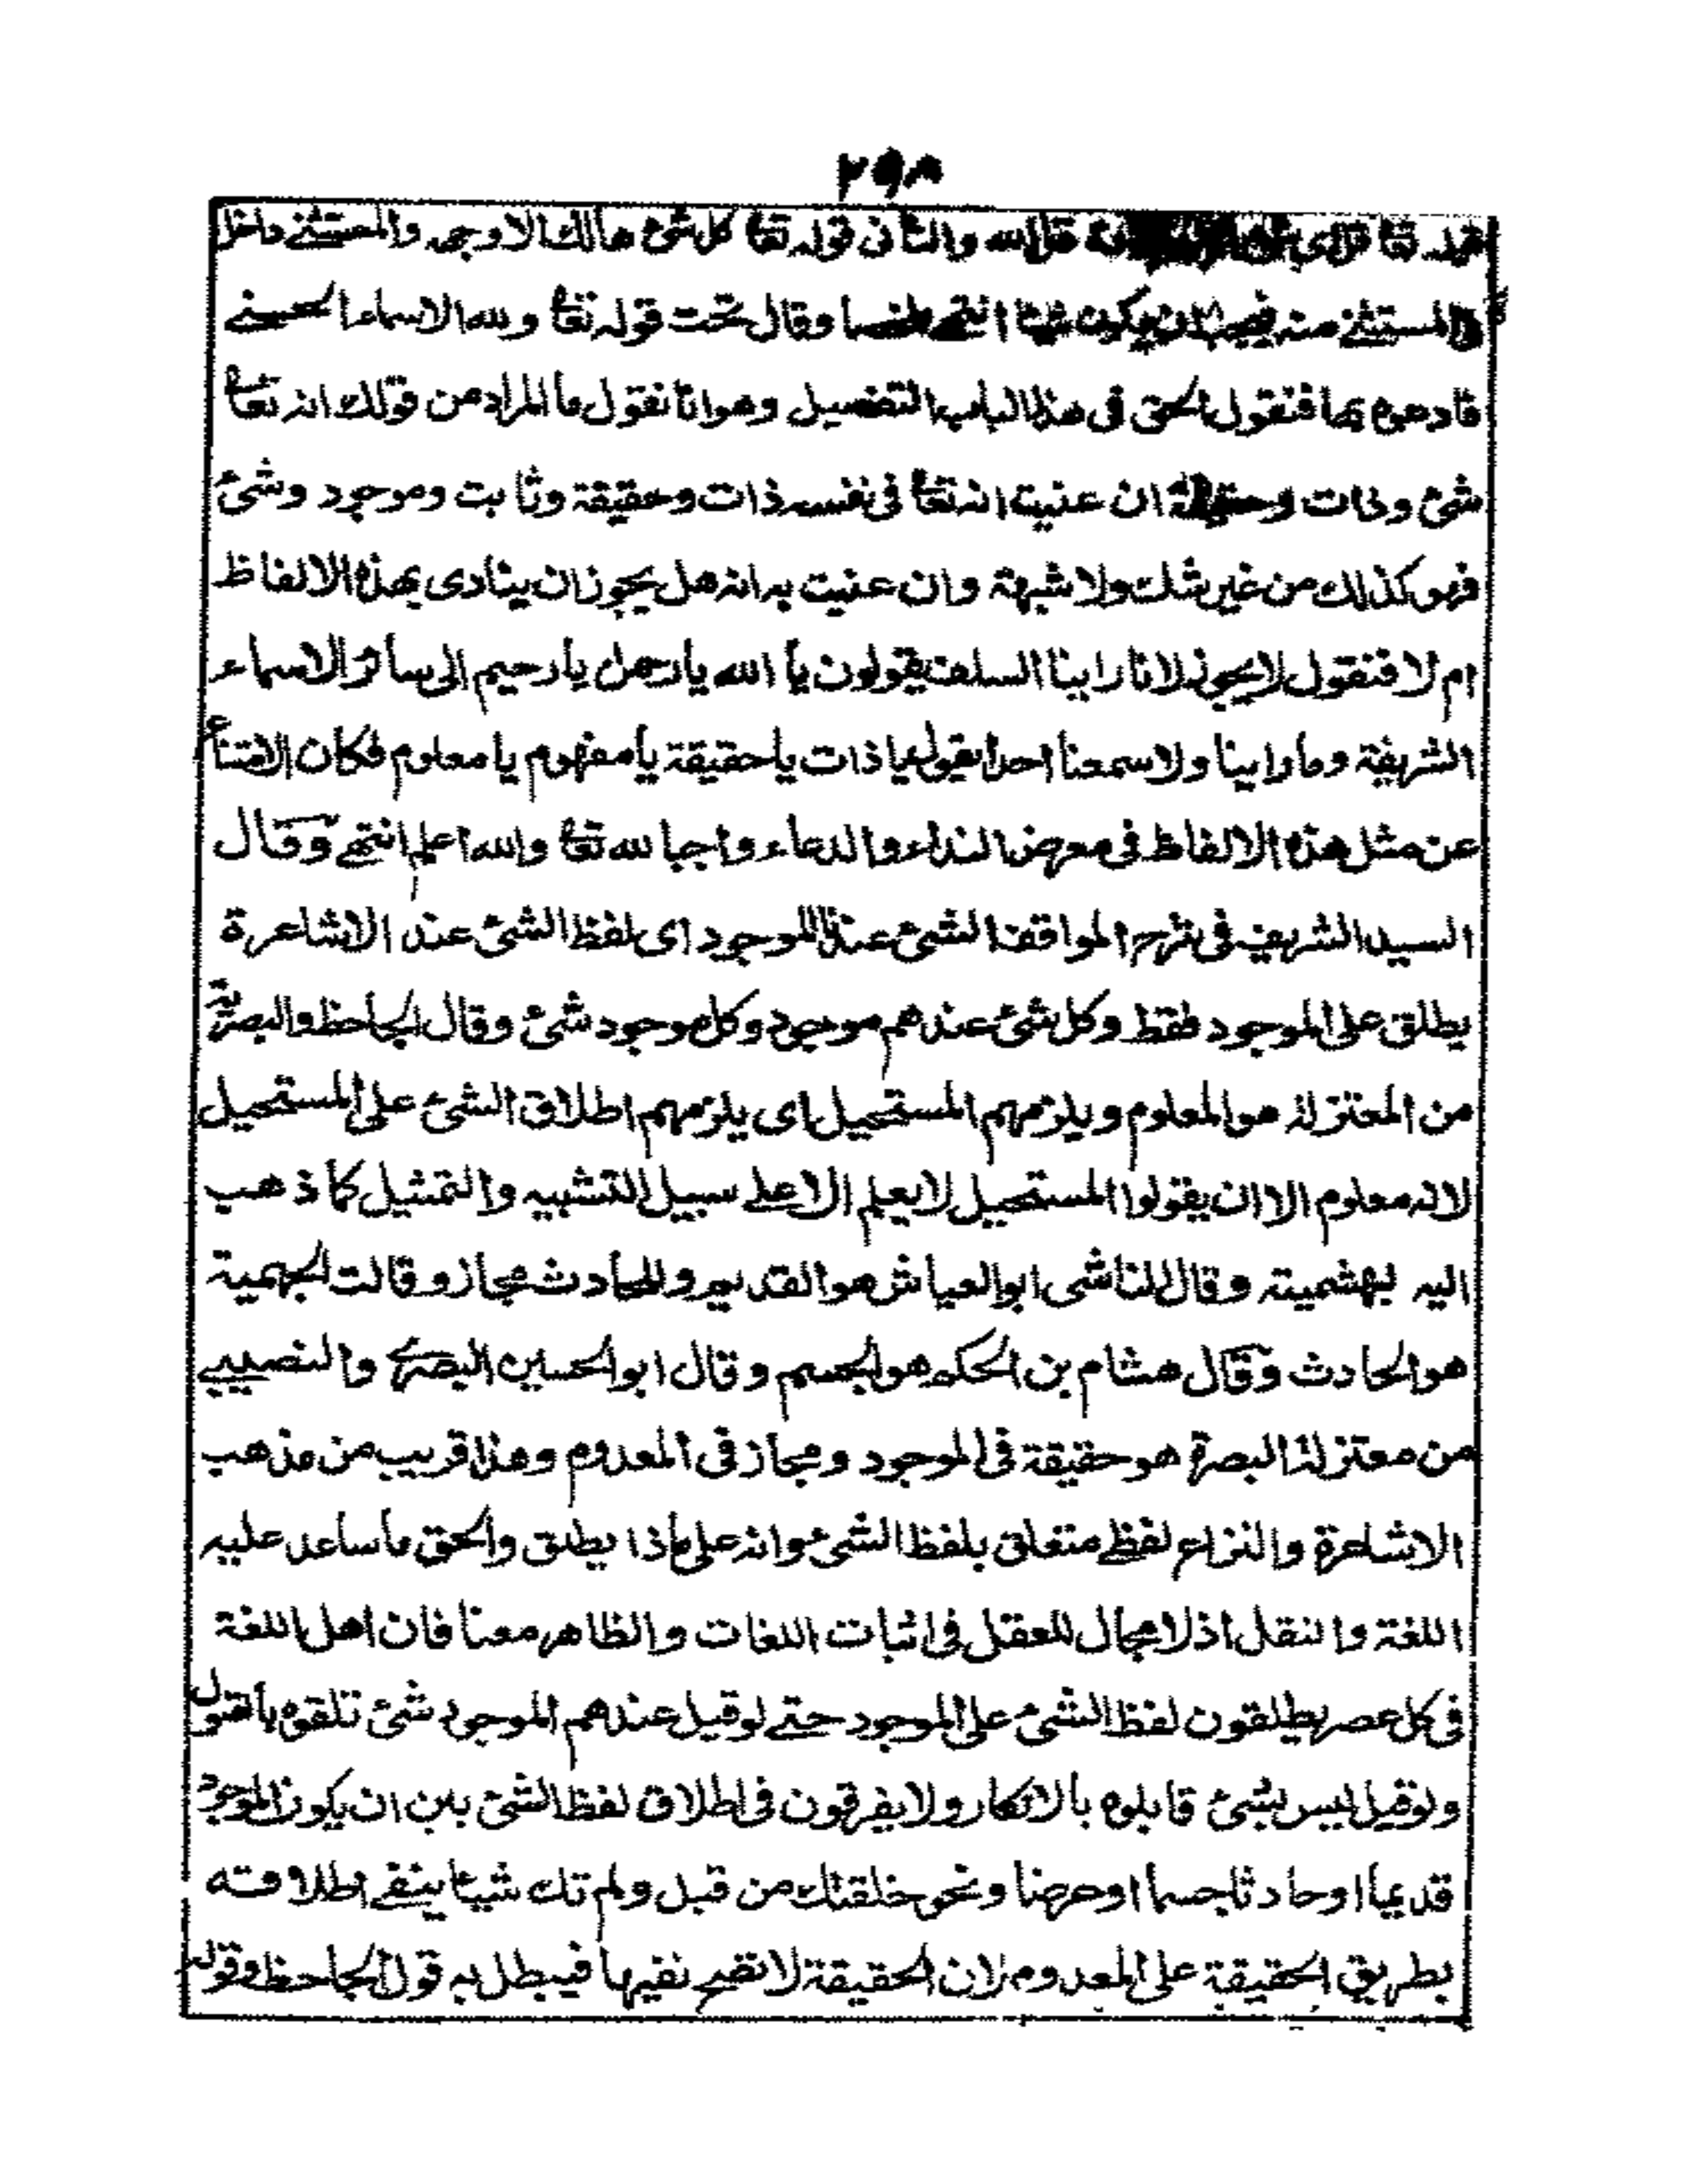 ٢٩٨
قوله تعا قل اى شئ قل الله والثانى قوله تعا كل شئ هالك الا وجهه والمستثنى داخل
فى المستثنى منه فيجب ان يكون شيئا انتهى ملخصا وقال تحت قوله تعا ولله الاسماء الحسنى
فادعوه بها فنقول الحق فى هذا الباب التفصيل وهو انا نقول ما المراد من قولك انه تعا
شئ وذات وحقيقة ان عنيت انه تعا فى نفسه ذات وحقيقة وثابت وموجود وشئ
فهو كذلك من غير شك ولا شبهة وان عنيت به انه هل يجوز ان ينادى بهذه الالفاظ
ام لا فنقول لا يجوز لانا راينا السلف يقولون يا الله يا رحمن يا رحيم الى سائر الاسماء
الشريفة وما راينا ولا سمعنا احدا يقول يا ذات يا حقيقة يا مفهوم يا معلوم فكان الامتناع
عن مثل هذه الالفاظ فى معرض النداء والدعاء واجبا لله تعا والله اعلم انتهى وقال
السيد الشريف فى شرح المواقف الشئ عندنا الموجود اى لفظ الشئ عند الاشاعرة
يطلق على الموجود فقط وكل شئ عندهم موجود وكل موجود شئ وقال الجاحظ والبصرية
من المعتزلة هو المعلوم ويلزمهم المستحيل اى يلزمهم اطلاق الشئ على المستحيل
لانه معلوم الا ان يقولوا المستحيل لا يعلم الا على سبيل التشبيه والتمثيل كما ذهب
اليه لبهشمية وقال الناشى ابوالعياش هو القديم وللحادث مجاز وقالت الجهمية
هو الحادث وقال هشام بن الحكم هو الجسم وقال ابوالحسين البصرى والنصيبى
من معتزلة البصرة هو حقيقة فى الموجود ومجاز فى المعدوم وهذا قريب من مذهب
الاشاعرة والنزاع لفظى متعلق بلفظ الشئ وانه على ماذا يطلق والحق ما ساعد عليه
اللغة والنقل اذ لا مجال للعقل فى اثبات اللغات والظاهر معنا فان اهل اللغة
فى كل عصر يطلقون لفظ الشئ على الموجود حتى لو قيل عندهم الموجود شئ تلقوه بالقبول
ولو قيل ليس بشئ قابلوه بالانكار ولا يفرقون فى اطلاق لفظ الشئ بين ان يكون الموجود
قديما او حادثا جسما او عرضا ونحو خلقتك من قبل ولم تك شيئا ينفى اطلاقه
بطريق الحقيقة على المعدوم لان الحقيقة لا تصح نفيها فيبطل به قول الجاحظ وقوله